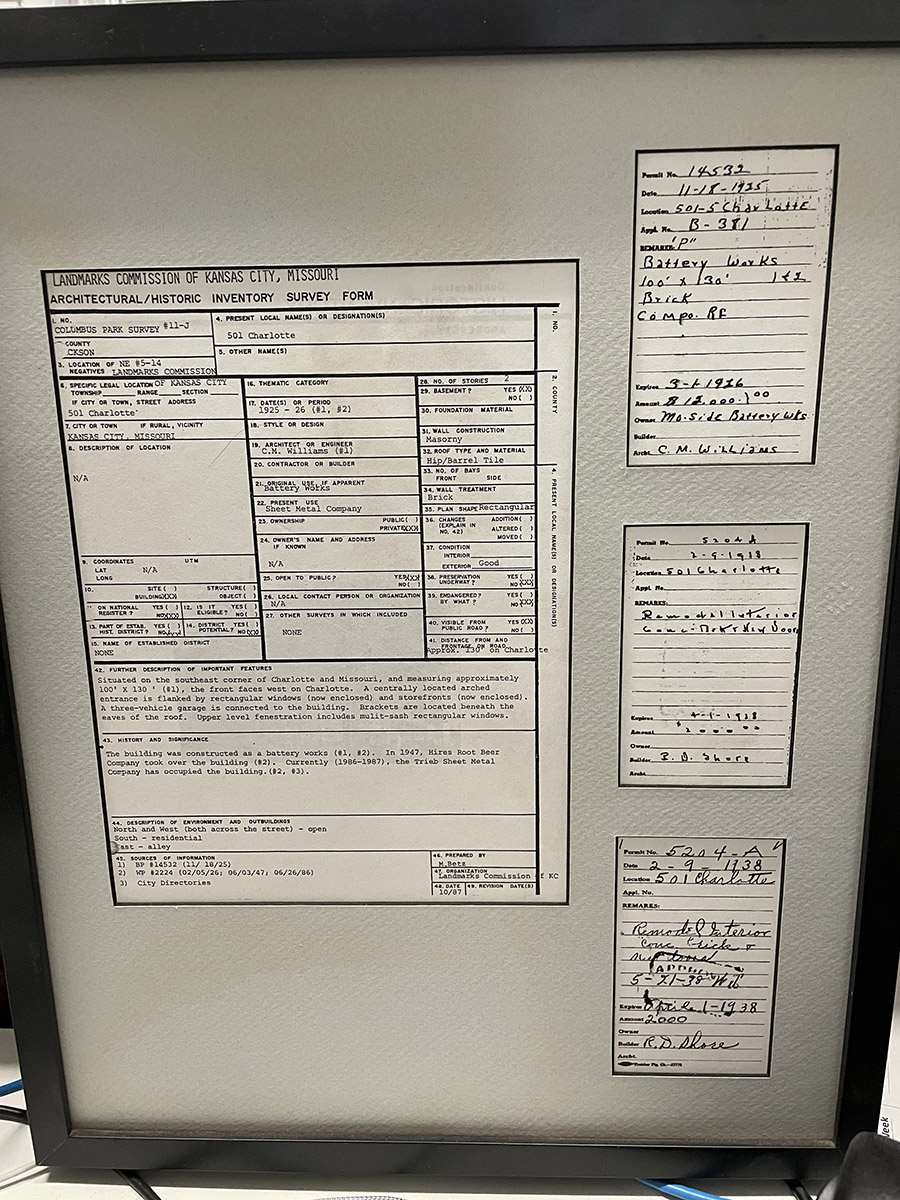 LANDMARKS COMMISSION OF KANSAS CITY, MISSOURI
ARCHITECTURAL/HISTORIC INVENTORY SURVEY FORM
1. NO.
COLUMBUS PARK SURVEY #11-J
COUNTY
CKSON
3. LOCATION OF NE #5-14
NEGATIVES LANDMARKS COMMISSION
4. PRESENT LOCAL NAME(S) OR DESIGNATION(S)
501 Charlotte
5. OTHER NAME(S)
6. SPECIFIC LEGAL LOCATION OF KANSAS CITY
TOWNSHIP RANGE SECTION
IF CITY OR TOWN, STREET ADDRESS
501 Charlotte
7. CITY OR TOWN IF RURAL, VICINITY
KANSAS CITY, MISSOURI
8. DESCRIPTION OF LOCATION
N/A
9. COORDINATES UTM
LAT N/A
LONG
10. SITE ( ) STRUCTURE( )
BUILDING(XX) OBJECT( )
11. ON NATIONAL REGISTER? YES ( ) NO(XX)
12. IS IT ELIGIBLE? YES( ) NO( )
13. PART OF ESTAB. HIST. DISTRICT? YES ( ) NO(XX)
14. DISTRICT POTENTIAL? YES( ) NO(XX)
15. NAME OF ESTABLISHED DISTRICT
NONE
16. THEMATIC CATEGORY
17. DATE(S) OR PERIOD
1925 - 26 (#1, #2)
18. STYLE OR DESIGN
19. ARCHITECT OR ENGINEER
C.M. Williams (#1)
20. CONTRACTOR OR BUILDER
21. ORIGINAL USE, IF APPARENT
Battery Works
22. PRESENT USE
Sheet Metal Company
23. OWNERSHIP PUBLIC( )
PRIVATE(XX)
24. OWNER'S NAME AND ADDRESS
IF KNOWN
N/A
25. OPEN TO PUBLIC? YES(XX)
NO( )
26. LOCAL CONTACT PERSON OR ORGANIZATION
N/A
27. OTHER SURVEYS IN WHICH INCLUDED
NONE
28. NO. OF STORIES 2
29. BASEMENT? YES (XX)
NO( )
30. FOUNDATION MATERIAL
31. WALL CONSTRUCTION
Masorny
32. ROOF TYPE AND MATERIAL
Hip/Barrel Tile
33. NO. OF BAYS
FRONT SIDE
34. WALL TREATMENT
Brick
35. PLAN SHAPE Rectangular
36. CHANGES (EXPLAIN IN NO. 42) ADDITION( )
ALTERED( )
MOVED( )
37. CONDITION
INTERIOR
EXTERIOR Good
38. PRESERVATION UNDERWAY? YES( )
NO(XX)
39. ENDANGERED? BY WHAT? YES( )
NO(XX)
40. VISIBLE FROM PUBLIC ROAD? YES(XX)
NO( )
41. DISTANCE FROM AND
FRONTAGE ON ROAD
Approx. 130' on Charlotte
1. NO.
2. COUNTY
4. PRESENT LOCAL NAME(S) OR DESIGNATION(S)
42. FURTHER DESCRIPTION OF IMPORTANT FEATURES
Situated on the southeast corner of Charlotte and Missouri, and measuring approximately
100' X 130 ' (#1), the front faces west on Charlotte. A centrally located arched
entrance is flanked by rectangular windows (now enclosed) and storefronts (now enclosed).
A three-vehicle garage is connected to the building. Brackets are located beneath the
eaves of the roof. Upper level fenestration includes mulit-sash rectangular windows.
43. HISTORY AND SIGNIFICANCE
The building was constructed as a battery works (#1, #2). In 1947, Hires Root Beer
Company took over the building (#2). Currently (1986-1987), the Trieb Sheet Metal
Company has occupied the building.(#2, #3).
44. DESCRIPTION OF ENVIRONMENT AND OUTBUILDINGS
North and West (both across the street) - open
South - residential
East - alley
45. SOURCES OF INFORMATION
1) BP #14532 (11/ 18/25)
2) WP #2224 (02/05/26; 06/03/47; 06/26/86)
3) City Directories
46. PREPARED BY
M.Betz
47. ORGANIZATION
Landmarks Commission of KC
48. DATE 49. REVISION DATE(S)
10/87
Permit No. 14532
Date 11-18-1925
Location 501-5 Charlotte
Appl. No. B-381
REMARKS: "P"
Battery Works
100' x 130' 1 & 2
Brick
Compo. RF
Expires 3-1-1926
Amount $12,000.00
Owner Mo-side Battery Wks
Builder
Archt. C. M. Williams
Permit No. 5204A
Date 2-9-1938
Location 501 Charlotte
Appl. No.
REMARKS:
Remodel Interior
Expires 4-1-1938
Amount
Owner
Builder R. D. Shore
Archt.
Permit No. 5204-A
Date 2-9-1938
Location 501 Charlotte
Appl. No.
REMARKS:
Remodel Interior
5-21-38
Expires April 1-1938
Amount 2000
Owner
Builder R. D. Shore
Archt.